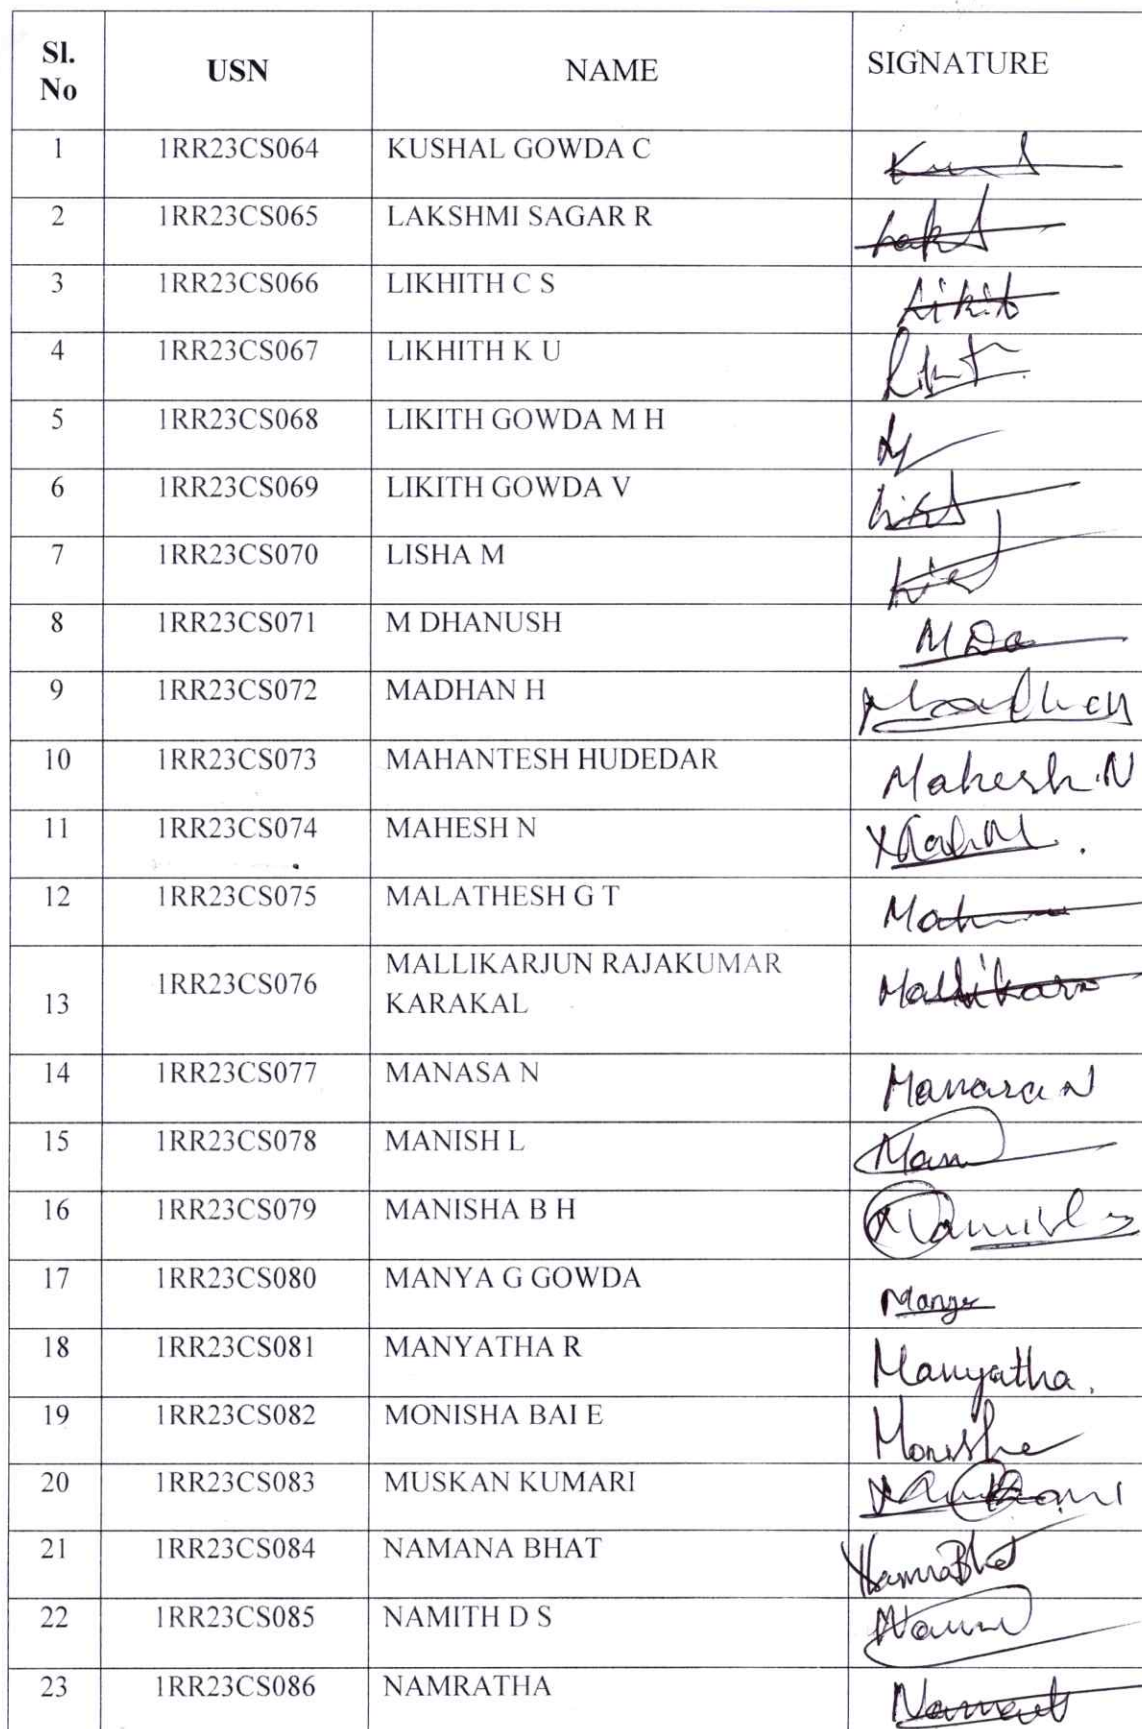 Sl. No USN NAME SIGNATURE
1 1RR23CS064 KUSHAL GOWDA C
2 1RR23CS065 LAKSHMI SAGAR R
3 1RR23CS066 LIKHITH C S Likit
4 1RR23CS067 LIKHITH K U
5 1RR23CS068 LIKITH GOWDA M H
6 1RR23CS069 LIKITH GOWDA V
7 1RR23CS070 LISHA M
8 1RR23CS071 M DHANUSH
9 1RR23CS072 MADHAN H Madhan
10 1RR23CS073 MAHANTESH HUDEDAR Mahesh.N
11 1RR23CS074 MAHESH N
12 1RR23CS075 MALATHESH G T
13 1RR23CS076 MALLIKARJUN RAJAKUMAR
KARAKAL
14 1RR23CS077 MANASA N Manasa N
15 1RR23CS078 MANISH L Man
16 1RR23CS079 MANISHA B H
17 1RR23CS080 MANYA G GOWDA
18 1RR23CS081 MANYATHA R Manyatha.
19 1RR23CS082 MONISHA BAI E Monisha
20 1RR23CS083 MUSKAN KUMARI
21 1RR23CS084 NAMANA BHAT
22 1RR23CS085 NAMITH D S
23 1RR23CS086 NAMRATHA